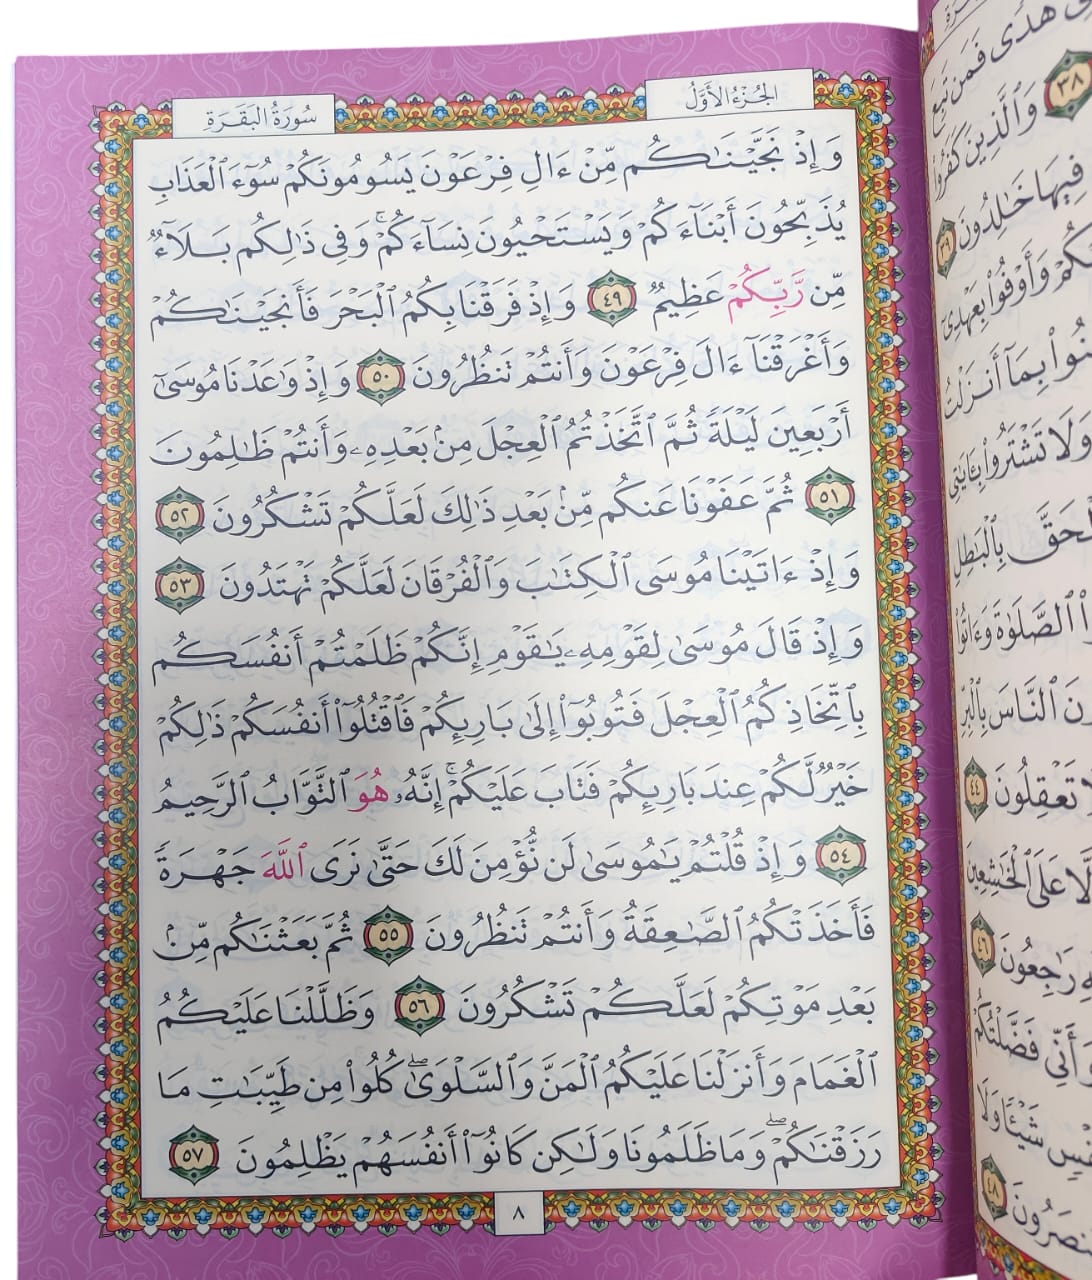 الجزء الأول
سورة البقرة
وَإِذْ نَجَّيْنَٰكُم مِّنْ ءَالِ فِرْعَوْنَ يَسُومُونَكُمْ سُوٓءَ ٱلْعَذَابِ
يُذَبِّحُونَ أَبْنَآءَكُمْ وَيَسْتَحْيُونَ نِسَآءَكُمْ ۚ وَفِى ذَٰلِكُم بَلَآءٌ
مِّن رَّبِّكُمْ عَظِيمٌ ٤٩ وَإِذْ فَرَقْنَا بِكُمُ ٱلْبَحْرَ فَأَنجَيْنَٰكُمْ
وَأَغْرَقْنَآ ءَالَ فِرْعَوْنَ وَأَنتُمْ تَنظُرُونَ ٥٠ وَإِذْ وَٰعَدْنَا مُوسَىٰٓ
أَرْبَعِينَ لَيْلَةً ثُمَّ ٱتَّخَذْتُمُ ٱلْعِجْلَ مِنۢ بَعْدِهِۦ وَأَنتُمْ ظَٰلِمُونَ
٥١ ثُمَّ عَفَوْنَا عَنكُم مِّنۢ بَعْدِ ذَٰلِكَ لَعَلَّكُمْ تَشْكُرُونَ ٥٢
وَإِذْ ءَاتَيْنَا مُوسَى ٱلْكِتَٰبَ وَٱلْفُرْقَانَ لَعَلَّكُمْ تَهْتَدُونَ ٥٣
وَإِذْ قَالَ مُوسَىٰ لِقَوْمِهِۦ يَٰقَوْمِ إِنَّكُمْ ظَلَمْتُمْ أَنفُسَكُم
بِٱتِّخَاذِكُمُ ٱلْعِجْلَ فَتُوبُوٓا۟ إِلَىٰ بَارِئِكُمْ فَٱقْتُلُوٓا۟ أَنفُسَكُمْ ذَٰلِكُمْ
خَيْرٌ لَّكُمْ عِندَ بَارِئِكُمْ فَتَابَ عَلَيْكُمْ ۚ إِنَّهُۥ هُوَ ٱلتَّوَّابُ ٱلرَّحِيمُ
٥٤ وَإِذْ قُلْتُمْ يَٰمُوسَىٰ لَن نُّؤْمِنَ لَكَ حَتَّىٰ نَرَى ٱللَّهَ جَهْرَةً
فَأَخَذَتْكُمُ ٱلصَّٰعِقَةُ وَأَنتُمْ تَنظُرُونَ ٥٥ ثُمَّ بَعَثْنَٰكُم مِّنۢ
بَعْدِ مَوْتِكُمْ لَعَلَّكُمْ تَشْكُرُونَ ٥٦ وَظَلَّلْنَا عَلَيْكُمُ
ٱلْغَمَامَ وَأَنزَلْنَا عَلَيْكُمُ ٱلْمَنَّ وَٱلسَّلْوَىٰ ۖ كُلُوا۟ مِن طَيِّبَٰتِ مَا
رَزَقْنَٰكُمْ ۖ وَمَا ظَلَمُونَا وَلَٰكِن كَانُوٓا۟ أَنفُسَهُمْ يَظْلِمُونَ ٥٧
٨
هُدًى فَمَن تَبِعَ
٣٨ وَٱلَّذِينَ كَفَرُوا۟
فِيهَا خَٰلِدُونَ ٣٩
وَأَوْفُوا۟ بِعَهْدِىٓ
بِمَآ أَنزَلْتُ
وَلَا تَشْتَرُوا۟ بِـَٔايَٰتِى
بِٱلْبَٰطِلِ
ٱلصَّلَوٰةَ وَءَاتُوا۟
ٱلنَّاسَ بِٱلْبِرِّ
تَعْقِلُونَ ٤٤
عَلَى ٱلْخَٰشِعِينَ
رَٰجِعُونَ ٤٦
وَأَنِّى فَضَّلْتُكُمْ
شَيْـًٔا وَلَا
٤٨